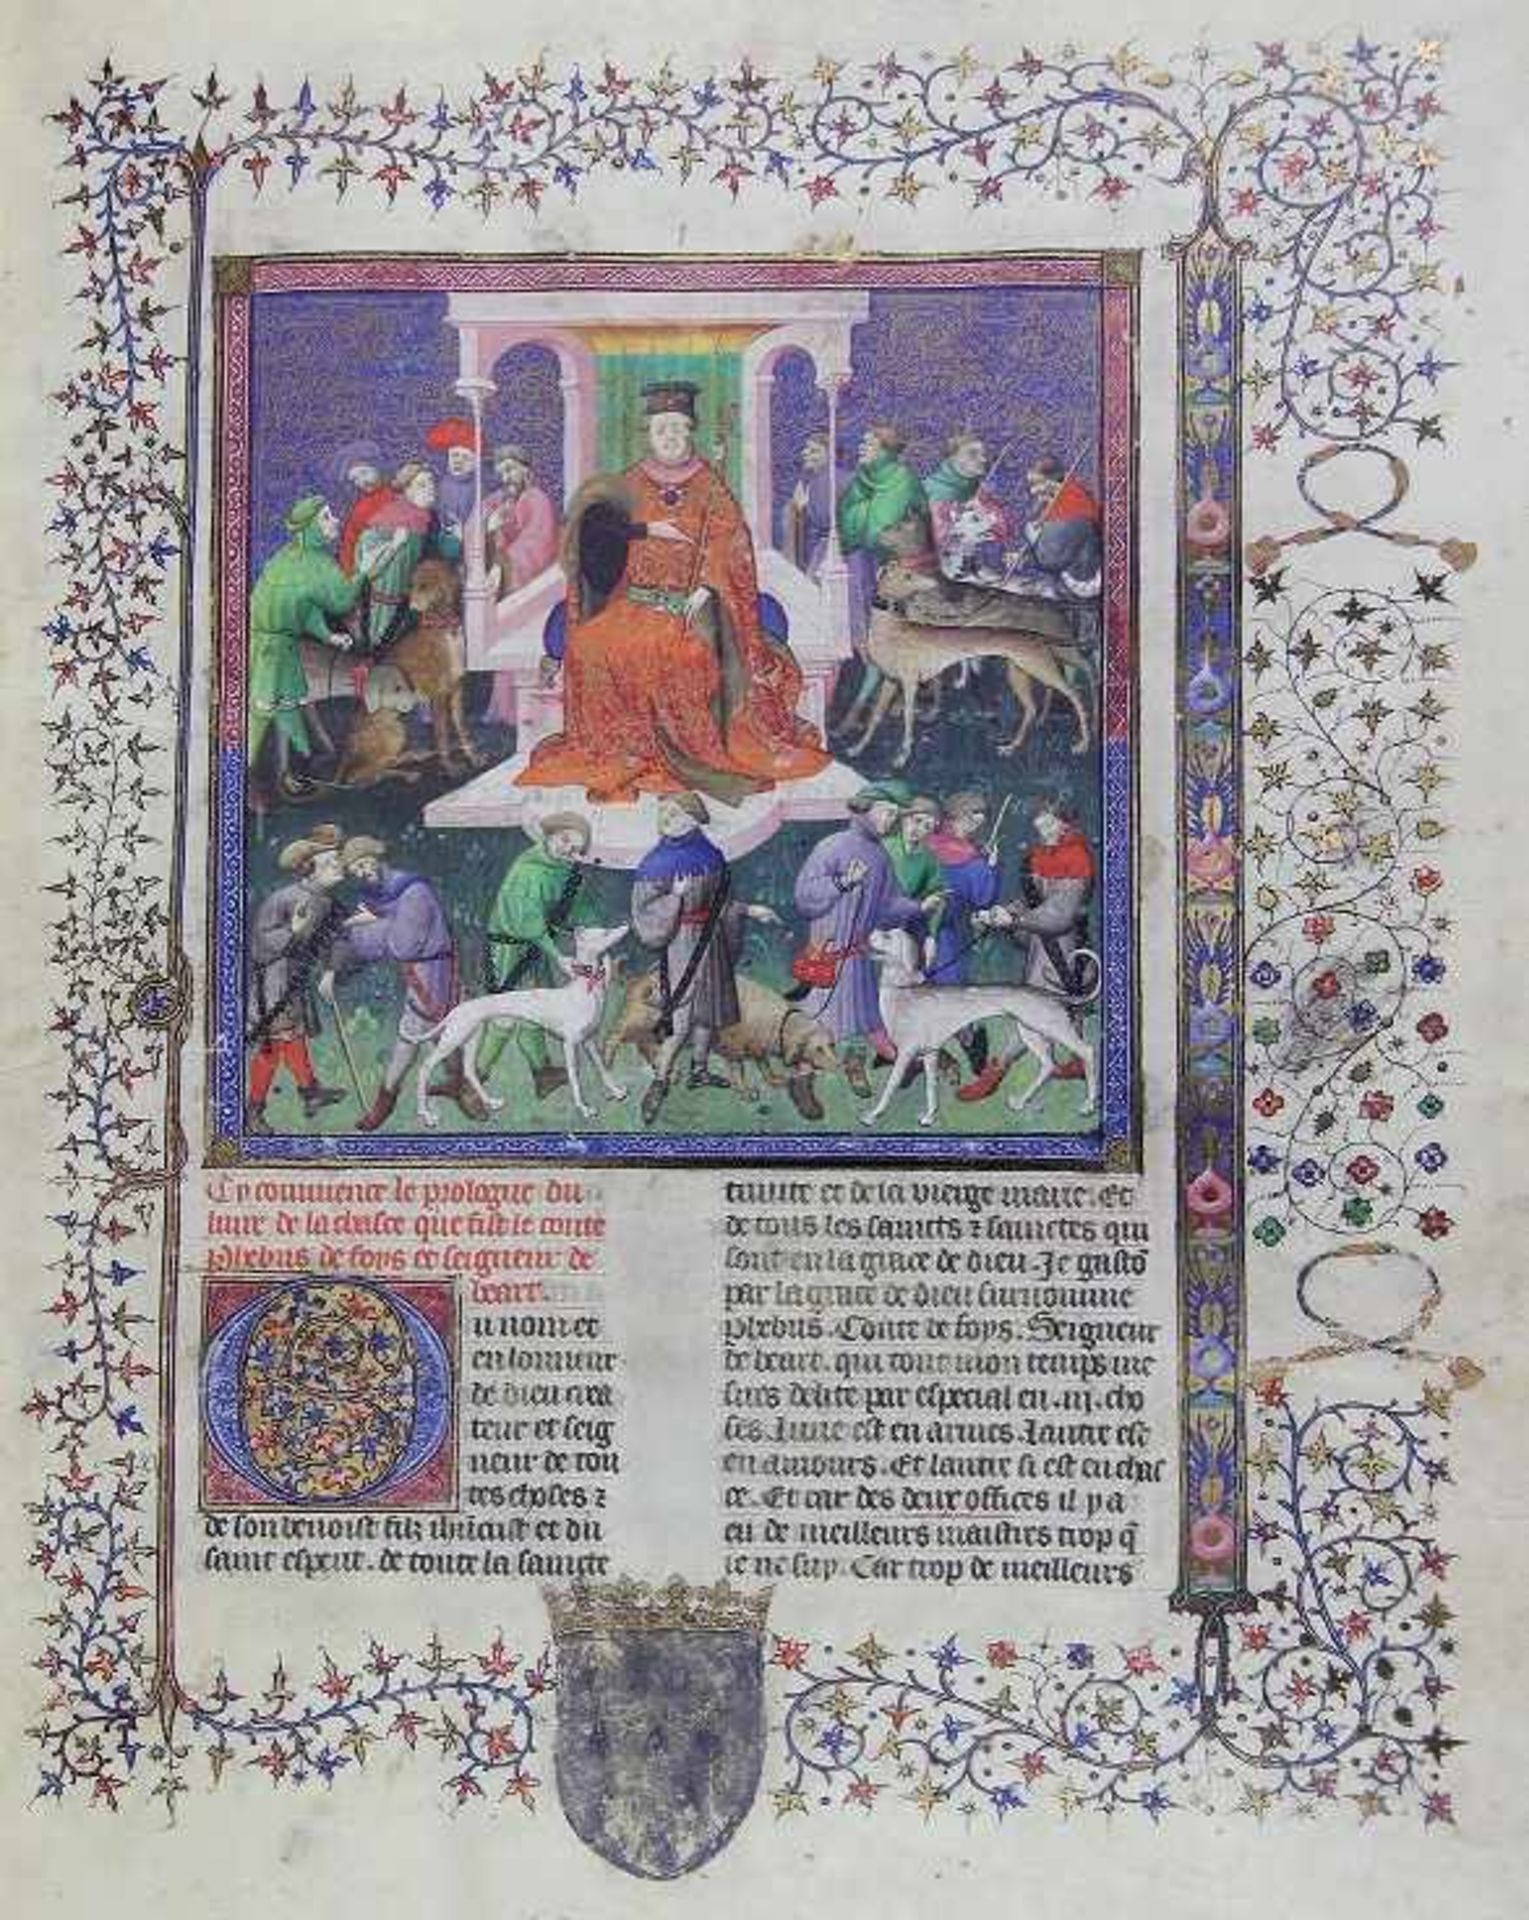 Cy commence le prologue du
liure de la chasse que fist le conte
phebus de foys et seigneur de
beart.
u nom et
en lonneur
de dieu crea
teur et seig
neur de tou
tes choses ⁊
de son benoist filz ihucrist et du
saint esperit. de toute la saincte
trinite et de la vierge marie. Et
de tous les saincts ⁊ sainctes qui
sont en la grace de dieu. Je gasto
par la grace de dieu surnomme
phebus. Conte de foys. Seigneur
de beart. qui tout mon temps me
suis delite par especial en .iii. cho
ses. Lune est en armes. lautre est
en amours. Et lautre si est en chac
ce. Et car des deux offices il y a
eu de meilleurs maistres trop q̄
ie ne suy. Car trop de meilleurs